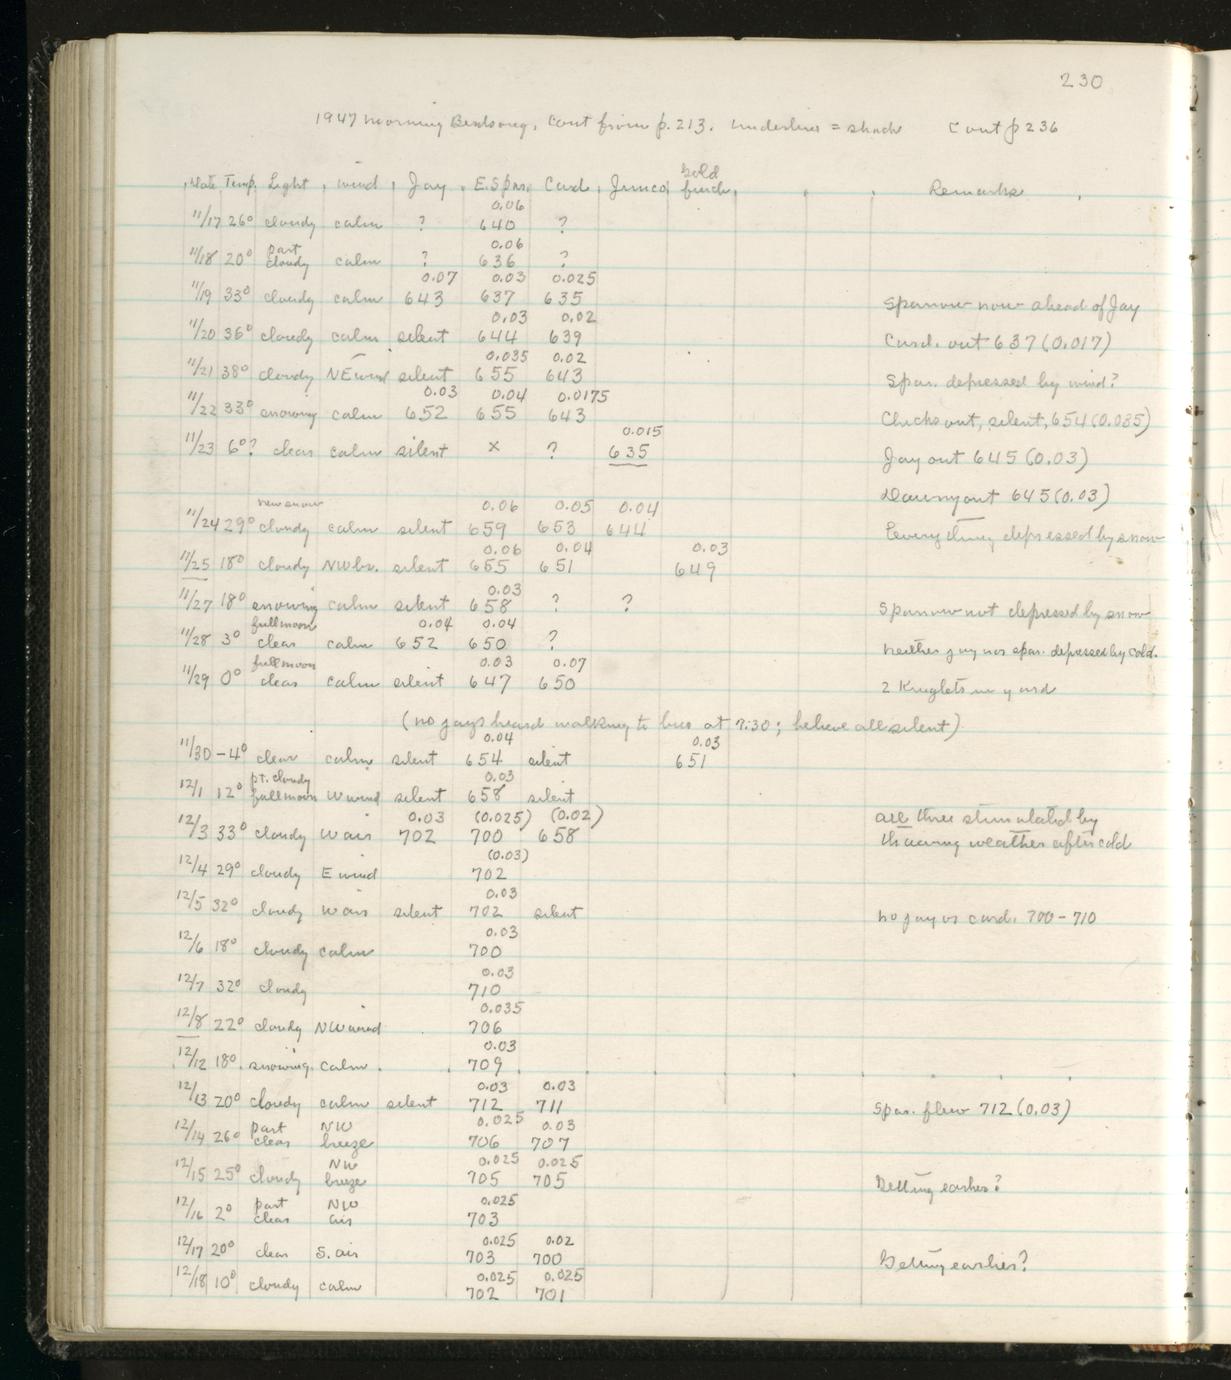 230
1947 Morning Birdsong, Cont from p. 213. Underlines = shack Cont p 236
Date Temp. Light wind Jay E. Spar. Card Junco Gold finch Remarks
0.06
11/17 26° cloudy calm ? 640 ?
part 0.06
11/18 20° cloudy calm ? 636 ?
0.07 0.03 0.025
11/19 33° cloudy calm 643 637 635 Sparrow now ahead of Jay
0.03 0.02
11/20 36° cloudy calm silent 644 639 Card. out 637 (0.017)
0.035 0.02
11/21 38° cloudy NE wind silent 655 643 Spar. depressed by wind?
0.03 0.04 0.0175
11/22 33° snowing calm 652 655 643 Chicks out, silent, 654 (0.035)
0.015
11/23 6°? clear calm silent x ? 635 Jay out 645 (0.03)
Downy out 645 (0.03)
new snow 0.06 0.05 0.04
11/24 29° cloudy calm silent 659 653 644 Everything depressed by snow
0.06 0.04 0.03
11/25 18° cloudy NW br. silent 655 651 649
0.03
11/27 18° snowing calm silent 658 ? ? Sparrow not depressed by snow
full moon 0.04 0.04
11/28 3° clear calm 652 650 ? Neither jay nor spar. depressed by cold.
full moon 0.03 0.07
11/29 0° clear calm silent 647 650 2 Kinglets in yard
(no jays heard walking to bus at 7:30; believe all silent)
0.04 0.03
11/30 -4° clear calm silent 654 silent 651
pt. cloudy 0.03
12/1 12° full moon W wind silent 658 silent
0.03 (0.025) (0.02) all three stimulated by
12/3 33° cloudy W air 702 700 658 thawing weather after cold
(0.03)
12/4 29° cloudy E wind 702
0.03
12/5 32° cloudy W air silent 702 silent no jay or card. 700-710
0.03
12/6 18° cloudy calm 700
0.03
12/7 32° cloudy 710
0.035
12/8 22° cloudy NW wind 706
0.03
12/12 18° snowing calm 709
0.03 0.03
12/13 20° cloudy calm silent 712 711 Spar. flew 712 (0.03)
part NW 0.025 0.03
12/14 26° clear breeze 706 707
NW 0.025 0.025
12/15 25° cloudy breeze 705 705 Getting earlier?
part NW 0.025
12/16 2° clear air 703
0.025 0.02
12/17 20° clear S. air 703 700 Getting earlier?
0.025 0.025
12/18 10° cloudy calm 702 701